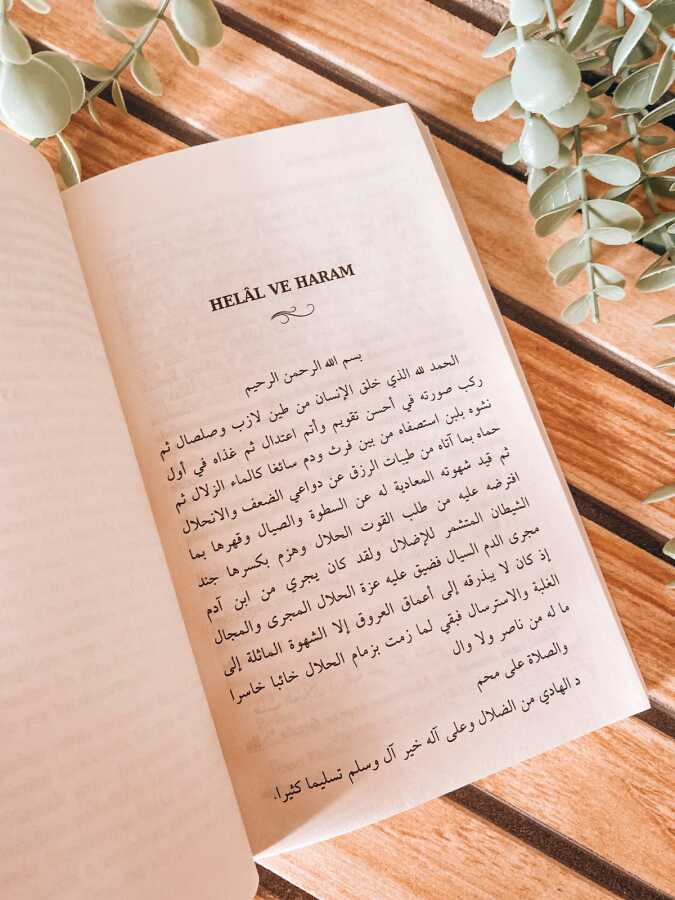 HELÂL VE HARAM
بسم الله الرحمن الرحيم
الحمد لله الذي خلق الإنسان من طين لازب وصلصال ثم
ركب صورته في أحسن تقويم وأتم اعتدال ثم غذاه في أول
نشوه بلبن استصفاه من بين فرث ودم سائغا كالماء الزلال ثم
حماه بما آتاه من طيبات الرزق عن دواعي الضعف والانحلال
ثم قيد شهوته المعادية له عن السطوة والصيال وقهرها بما
افترضه عليه من طلب القوت الحلال وهزم بكسرها جند
الشيطان المتشمر للإضلال ولقد كان يجري من ابن آدم
مجرى الدم السيال فضيق عليه عزة الحلال المجرى والمجال
إذ كان لا يبذرقه إلى أعماق العروق إلا الشهوة المائلة إلى
الغلبة والاسترسال فبقي لما زمت بزمام الحلال خائبا خاسرا
ما له من ناصر ولا وال
والصلاة على محم
د الهادي من الضلال وعلى آله خير آل وسلم تسليما كثيرا.